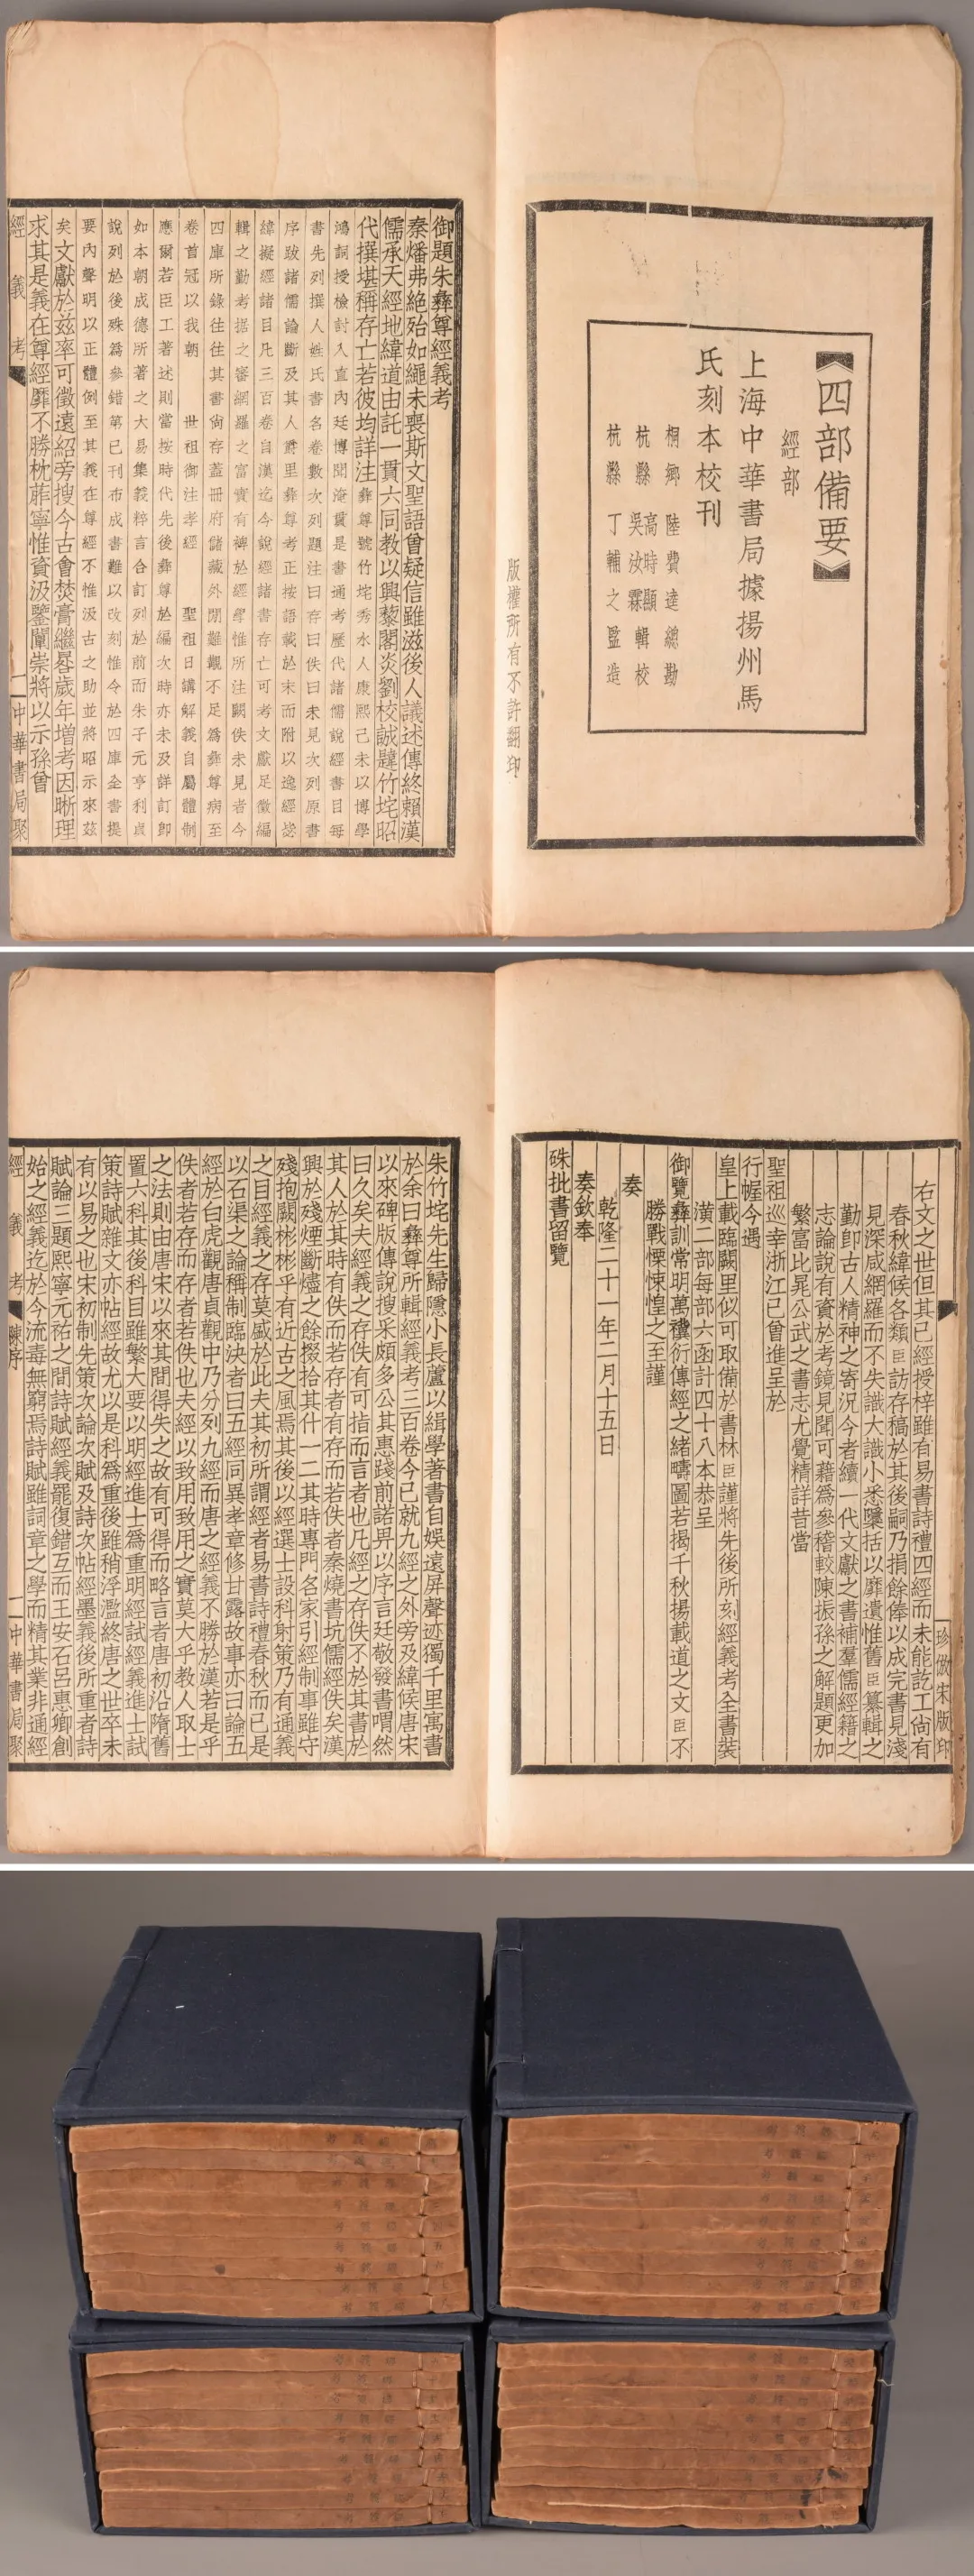 【四部備要】
經部
上海中華書局據揚州馬
氏刻本校刊
桐鄉 陸費逵總勘
杭縣 高時顯 吳汝霖 輯校
杭縣 丁輔之監造
版權所有不許翻印
御題朱彝尊經義考
秦燔弗絶殆如繩未喪斯文聖語曾疑信雖滋後人議述傳終賴漢
儒承天經地緯道由託一貫六同教以興藜閣炎劉校誠韙竹垞昭
代撰堪稱存亡若彼均詳注彝尊號竹垞秀水人康熙己未以博學
鴻詞授檢討入直內廷博聞淹貫是書通考歷代諸儒說經書目每
書先列撰人姓氏書名卷數次列題注曰存曰佚曰未見次列原書
序跋諸儒論斷及其人爵里彝尊考正按語載於末而附以逸經毖
緯擬經諸目凡三百卷自漢迄今說經諸書存亡可考文獻足徵編
輯之勤考据之審網羅之富實有裨於經學惟所注闕佚未見者今
四庫所錄往往其書尙存蓋冊府儲藏外閒難觀不足爲彝尊病至
卷首冠以我朝 世祖御注孝經 聖祖日講解義自屬體制
應爾若臣工著述則當按時代先後彝尊於編次時亦未及詳訂卽
如本朝成德所著之大易集義粹言合訂列於前而朱子元亨利貞
說列於後殊爲參錯第已刊布成書難以改刻惟令於四庫全書提
要內聲明以正體例至其義在尊經不惟汲古之助並將昭示來茲
矣文獻於茲率可徵遠紹旁搜今古會焚膏繼晷歲年增考因晰理
求其是義在尊經靡不勝枕葄寧惟資汲鑒闡崇將以示孫曾
經義考
一 中華書局聚
珍倣宋版印
右文之世但其已經授梓雖有易書詩禮四經而未能訖工尙有
春秋緯候各類臣訪存稿於其後嗣乃捐餘俸以成完書見淺
見深咸網羅而不失識大識小悉櫽括以靡遺惟舊臣纂輯之
勤卽古人精神之寄況今者續一代文獻之書補羣儒經籍之
志論說有資於考鏡見聞可藉爲參稽較陳振孫之解題更加
繁富比晁公武之書志尤覺精詳昔當
聖祖巡幸浙江已曾進呈於
行幄今遇
皇上載臨闕里似可取備於書林臣謹將先後所刻經義考全書裝
潢二部每部六函計四十八本恭呈
御覽彝訓常明萬禩衍傳經之緒疇圖若揭千秋揚載道之文臣不
勝戰慄悚惶之至謹
奏
乾隆二十一年二月十五日
奏欽奉
硃批書留覽
朱竹垞先生歸隱小長蘆以緝學著書自娛遠屏聲迹獨千里寓書
於余曰彝尊所輯經義考三百卷今已就九經之外旁及緯候唐宋
以來碑版傳說搜采頗多公其惠踐前諾畀以序言廷敬發書喟然
曰久矣夫經義之存佚有可指而言者也凡經之存佚不於其書於
其人於其時有佚而若存者有存而若佚者秦燒書坑儒經佚矣漢
興於殘煙斷燼之餘掇拾其什一二其時專門名家引經制事雖守
殘抱闕彬彬乎有近古之風焉其後以經選士設科射策乃有通義
之目經義之存莫盛於此夫其初所謂經者易書詩禮春秋而已是
以石渠之論稱制臨決者曰五經同異孝章修甘露故事亦曰論五
經於白虎觀唐貞觀中乃分列九經而唐之經義不勝於漢若是乎
佚者若存而存者若佚也夫經以致用致用之實莫大乎教人取士
之法則由唐宋以來其得失之故有可得而略言者唐初沿隋舊
置六科其後科目雖繁大要以明經進士爲重明經試經義進士試
策詩賦雜文亦帖經故尤以是科爲重後雖稍浮濫終唐之世卒未
有以易之也宋初制先策次論次賦及詩次帖經墨義後所重者詩
賦論三題熙寧元祐之間詩賦經義罷復錯互而王安石呂惠卿創
始之經義迄於今流毒無窮焉詩賦雖詞章之學而精其業非通經
經義考 陳序
一 中華書局聚